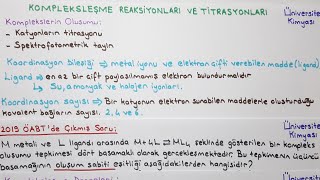 KOMPLEKSLEŞME REAKSİYONLARI VE TİTRASYONLARI
Üniversite Kimyası
Komplekslerin Oluşumu:
- Katyonların titrasyonu
- Spektrofotometrik tayin
Koordinasyon bileşiği ⇒ metal iyonu ve elektron çift verebilen madde (ligand)
Ligand ⇒ en az bir çift paylaşılmamış elektron bulundurmalıdır
↳ Su, amonyak ve halojen iyonları.
Koordinasyon sayısı ⇒ Bir katyonun elektron sunabilen maddelerle oluşturduğu kovalent bağların sayısı. 2, 4 ve 6.
2019 ÖABT'de Çıkmış Soru:
Üniversite Kimyası
M metali ve L ligandı arasında M+4L ⇌ ML₄ şeklinde gösterilen bir kompleks
oluşumu tepkimesi dört basamaklı olarak gerçekleşmektedir. Bu tepkimenin üçüncü
basamağının oluşum sabiti eşitliği aşağıdakilerden hangisidir?